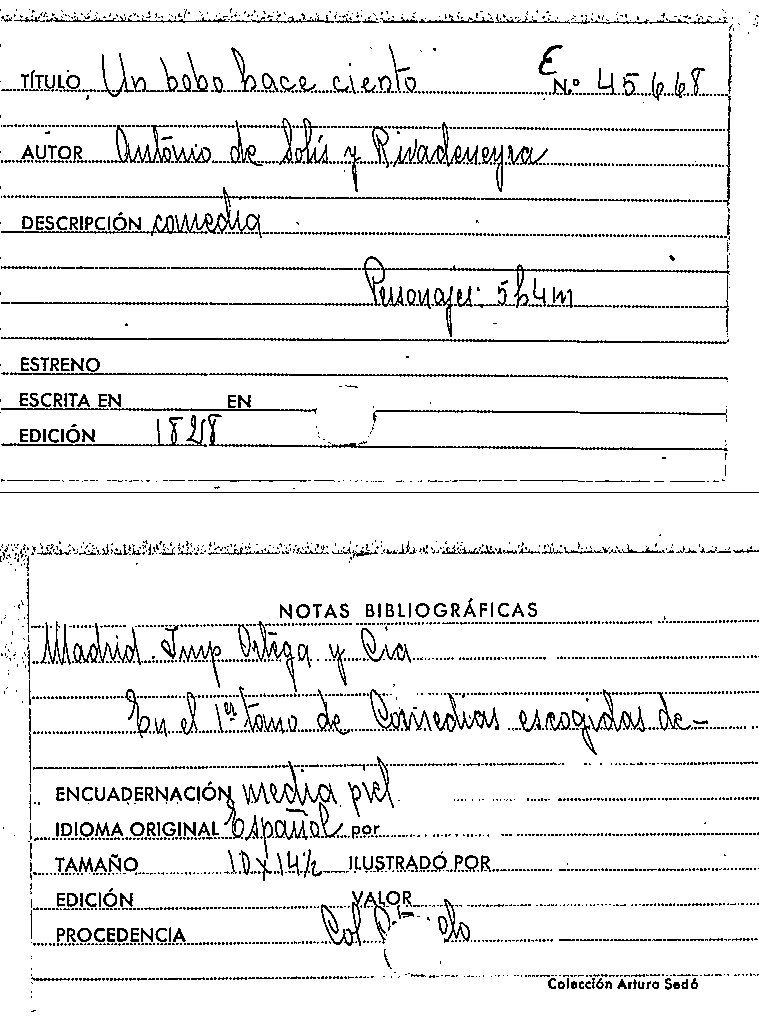 TÍTULO Un bobo hace ciento E N.º 45668
AUTOR Antonio de Solís y Rivadeneyra
DESCRIPCIÓN comedia
Personajes: 5h4m
ESTRENO
ESCRITA EN EN
EDICIÓN 1828
NOTAS BIBLIOGRÁFICAS
Madrid. Imp Ortega y Cia
En el 1er tomo de Comedias escogidas de-
ENCUADERNACIÓN media piel
IDIOMA ORIGINAL Español por
TAMAÑO 10x14½ ILUSTRADO POR
EDICIÓN VALOR
PROCEDENCIA Col
Colección Arturo Sedó